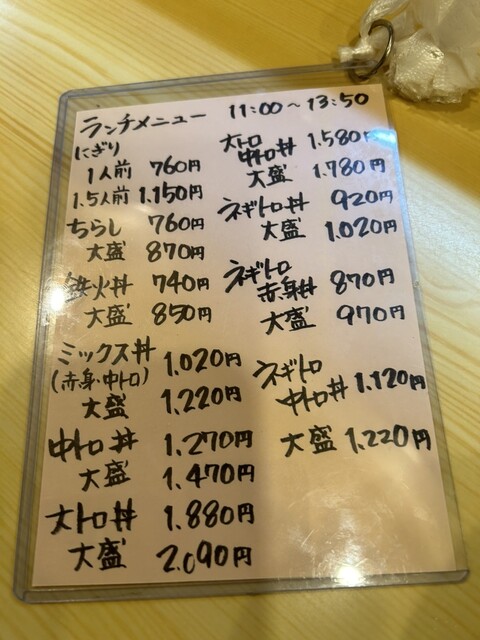 ランチメニュー 11:00〜13:50
にぎり
1人前 760円
1.5人前 1.150円
ちらし 760円
大盛 870円
鉄火丼 740円
大盛 850円
ミックス丼 1.020円
(赤身・中トロ)
大盛 1.220円
中トロ丼 1.270円
大盛 1.470円
大トロ丼 1.880円
大盛 2.090円
大トロ
中トロ丼 1.580円
大盛 1.780円
ネギトロ丼 920円
大盛 1.020円
ネギトロ
赤身丼 870円
大盛 970円
ネギトロ
中トロ丼 1.120円
大盛 1.220円